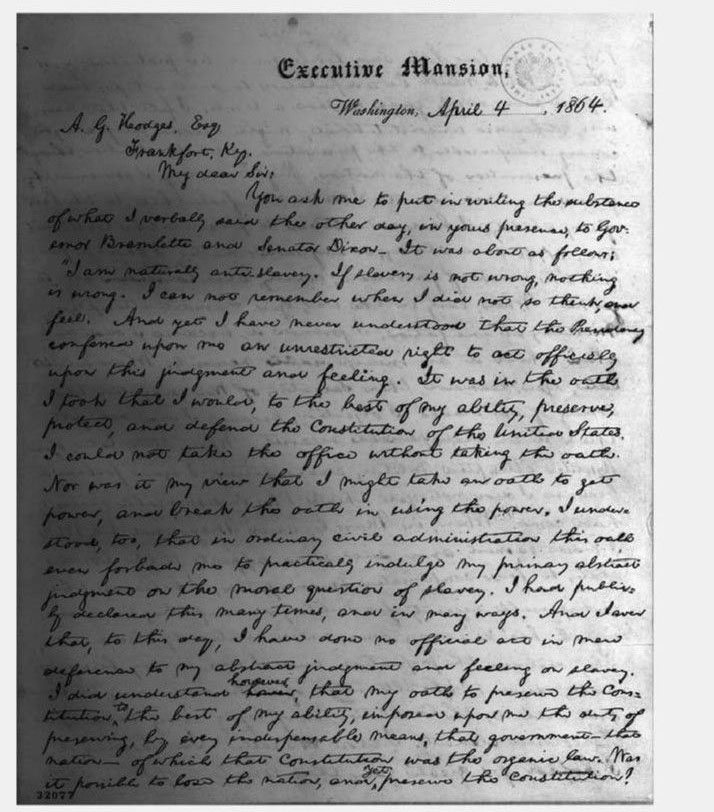 Executive Mansion,
Washington, April 4, 1864.
A. G. Hodges, Esq
Frankfort, Ky.
My dear Sir:
You ask me to put in writing the substance
of what I verbally said the other day, in your presence, to Gov-
ernor Bramlette and Senator Dixon_ It was about as follows:
"I am naturally anti-slavery. If slavery is not wrong, nothing
is wrong. I can not remember when I did not so think, and
feel. And yet I have never understood that the Presidency
conferred upon me an unrestricted right to act officially
upon this judgment and feeling. It was in the oath
I took that I would, to the best of my ability, preserve,
protect, and defend the Constitution of the United States.
I could not take the office without taking the oath.
Nor was it my view that I might take an oath to get
power, and break the oath in using the power. I under-
stood, too, that in ordinary civil administration this oath
even forbade me to practically indulge my primary abstract
judgment on the moral question of slavery. I had public-
ly declared this many times, and in many ways. And I aver
that, to this day, I have done no official act in mere
deference to my abstract judgment and feeling on slavery.
I did understand however, that my oath to preserve the Cons-
titution to the best of my ability, imposed upon me the duty of
preserving, by every indispensable means, that government_ that
nation_ of which that Constitution was the organic law. Was
it possible to lose the nation, and yet preserve the Constitution?
32077